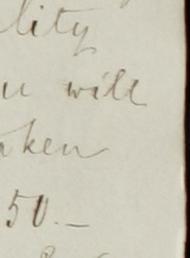 lity
u will
aken
50.—